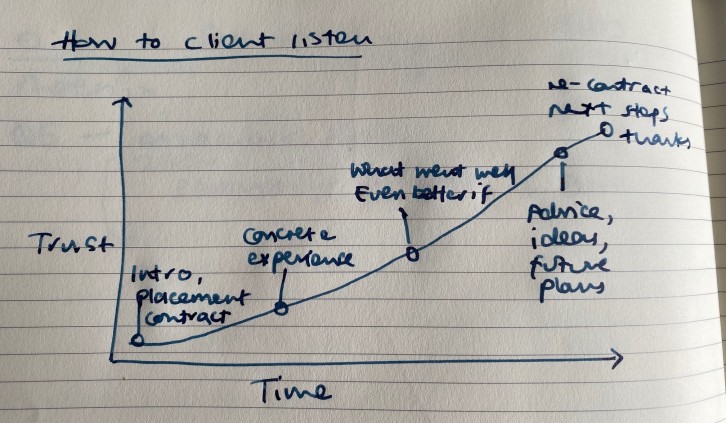 How to client listen
re-contract
next steps
thanks
What went well
Even better if
Advice,
ideas,
future
plans
Concrete
experience
Intro,
placement
contract
Trust
Time